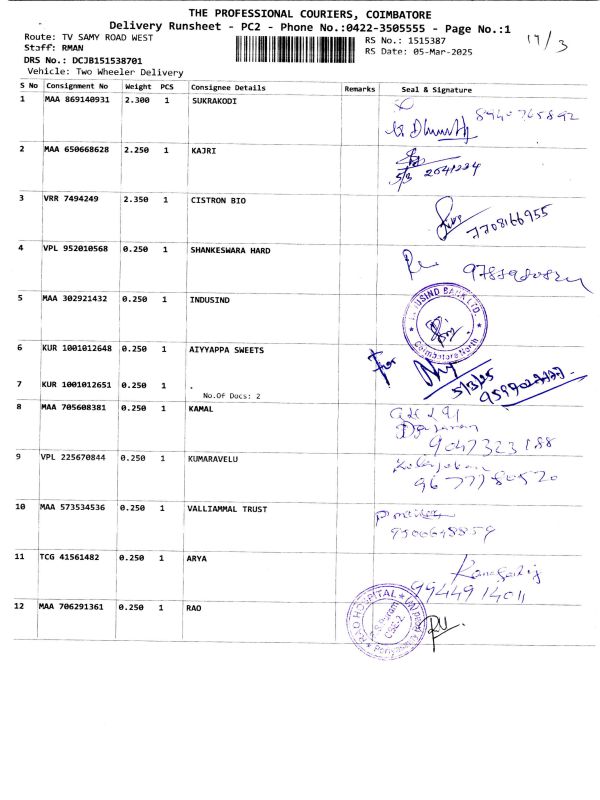 THE PROFESSIONAL COURIERS, COIMBATORE
Delivery Runsheet - PC2 - Phone No.:0422-3505555 - Page No.:1
Route: TV SAMY ROAD WEST
RS No.: 1515387
Staff: RMAN
RS Date: 05-Mar-2025
DRS No.: DCJB151538701
Vehicle: Two Wheeler Delivery
S No Consignment No Weight PCS Consignee Details Remarks Seal & Signature
1 MAA 869140931 2.300 1 SUKRAKODI
2 MAA 650668628 2.250 1 KAJRI
5/3
3 VRR 7494249 2.350 1 CISTRON BIO
7708166955
4 VPL 952010568 0.250 1 SHANKESWARA HARD
5 MAA 302921432 0.250 1 INDUSIND
INDUSIND BANK LTD.
Coimbatore North
6 KUR 1001012648 0.250 1 AIYYAPPA SWEETS
for
5/3/25
7 KUR 1001012651 0.250 1 .
No.Of Docs: 2
8 MAA 705608381 0.250 1 KAMAL
9047323188
9 VPL 225670844 0.250 1 KUMARAVELU
10 MAA 573534536 0.250 1 VALLIAMMAL TRUST
11 TCG 41561482 0.250 1 ARYA
9944914011
12 MAA 706291361 0.250 1 RAO
RAO HOSPITAL